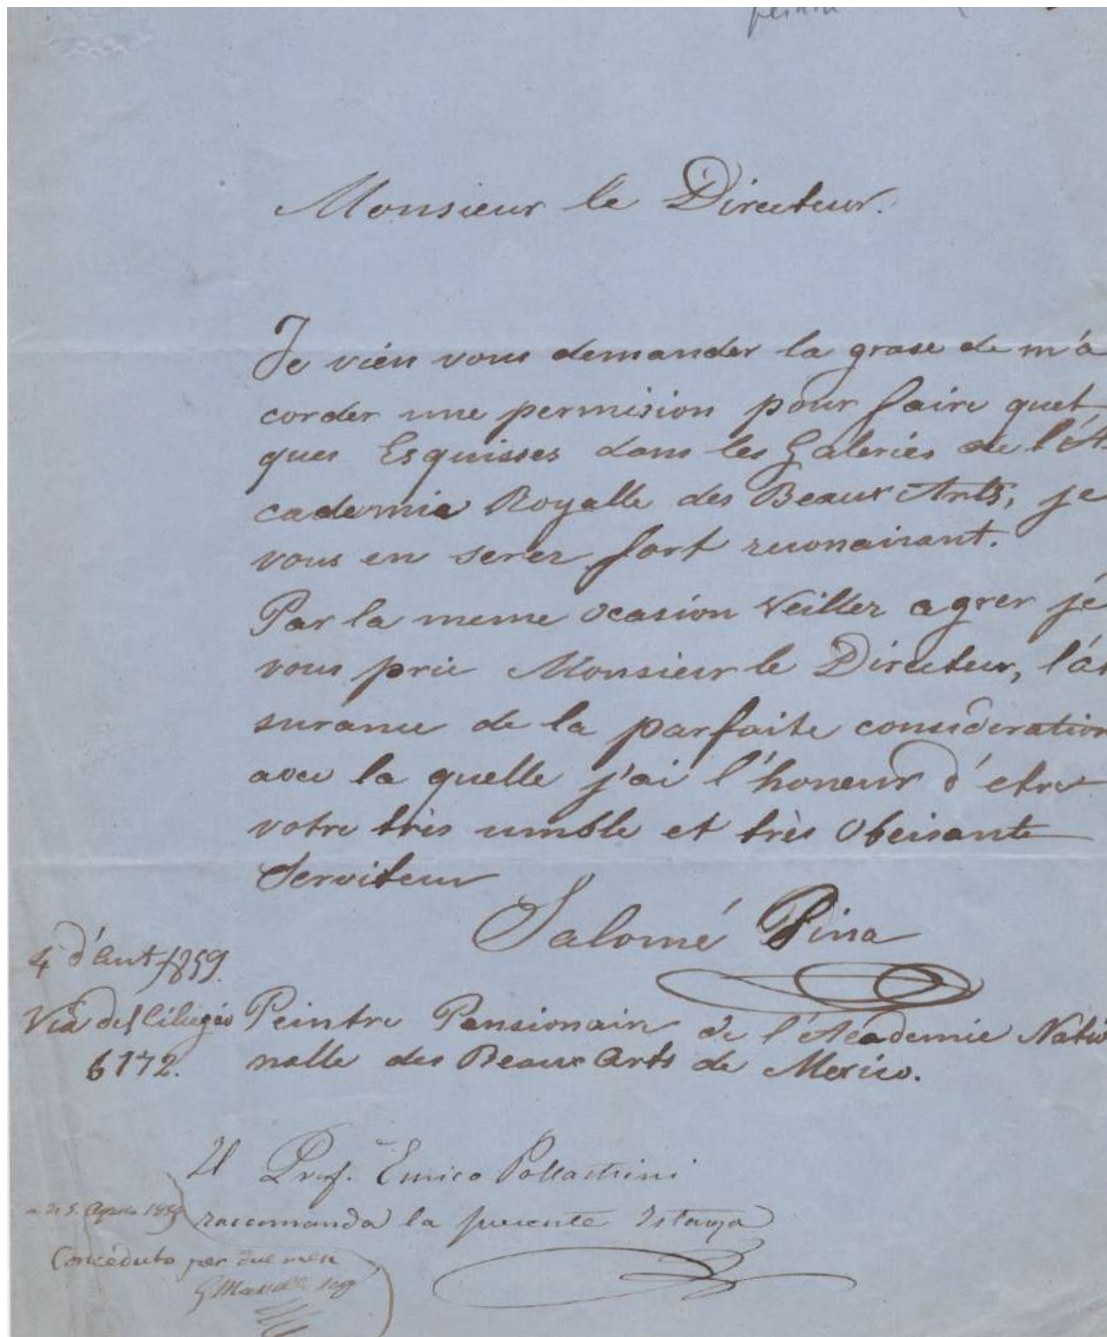 Monsieur le Directeur.
Je vién vous demander la grase de m'a
corder une permision pour faire quel
ques Esquisses dans les Galeriés de l'A
cademie Royalle des Beaux Arts, je
vous en serez fort reconaisant.
Par la meme ocasion Veillez agrer je
vous prie Monsieur le Directeur, l'as
surance de la parfaite consideration
avec la quelle j'ai l'honeur d'etre
votre très umble et très Obeisante
Serviteur
Salomé Pina
4 d'Aut 1859.
Via del Ciliegio
6172.
Peintre Pensionair de l'Academie Natio
nalle des Beaux Arts de Mexico.
Il Prof. Enrico Pollastrini
raccomanda la presente Istanza
a di 5. Agosto 1859
Conceduto per due mesi